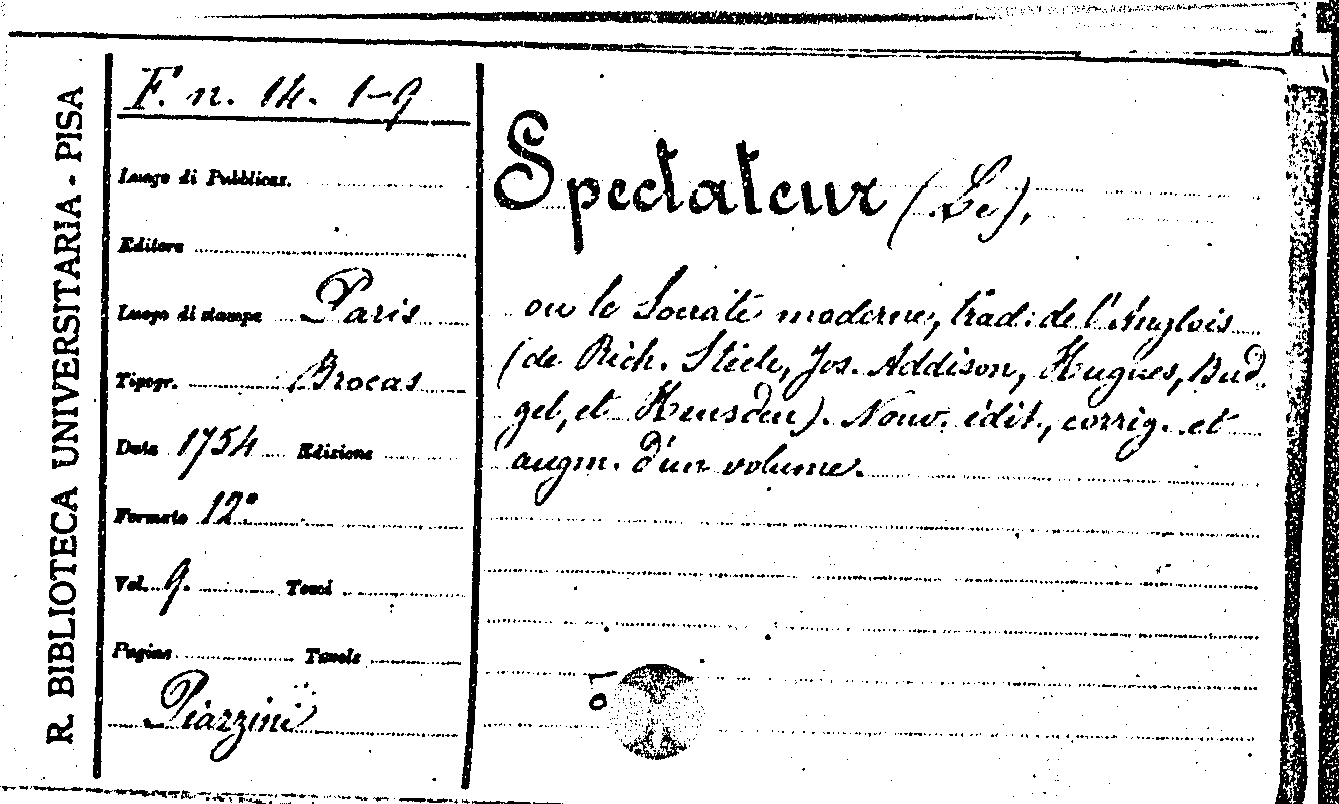 R. BIBLIOTECA UNIVERSITARIA - PISA
F. n. 14. 1-9
Luogo di Pubblicaz.
Editore
Luogo di stampa Paris
Tipogr. Brocas
Data 1754 Edizione
Formato 12°
Vol. 9. Tomi
Pagine Tavole
Piazzini
Spectateur (Le),
ou le Socrate moderne, trad. de l'Anglois
(de Rich. Stiele, Jos. Addison, Hugues, Bud-
gel, et Heusden). Nouv. édit., corrig. et
augm. d'un volume.